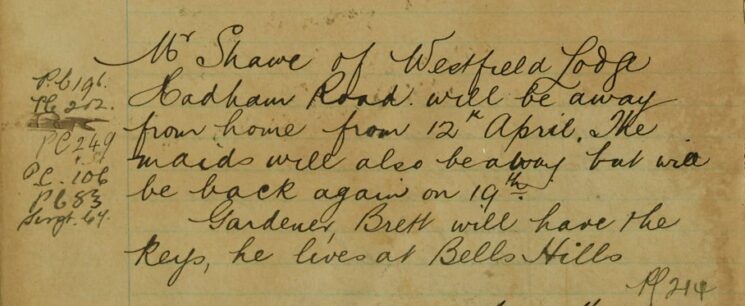 Mr Shawe of Westfield Lodge
Hadham Road. will be away
from home from 12th April. The
maids will also be away but will
be back again on 19th.
Gardener, Brett will have the
keys, he lives at Bells Hills
P.C 196.
PC 202.
PC 249
P.C. 106
PC 83
Sergt. 64.
PC 214